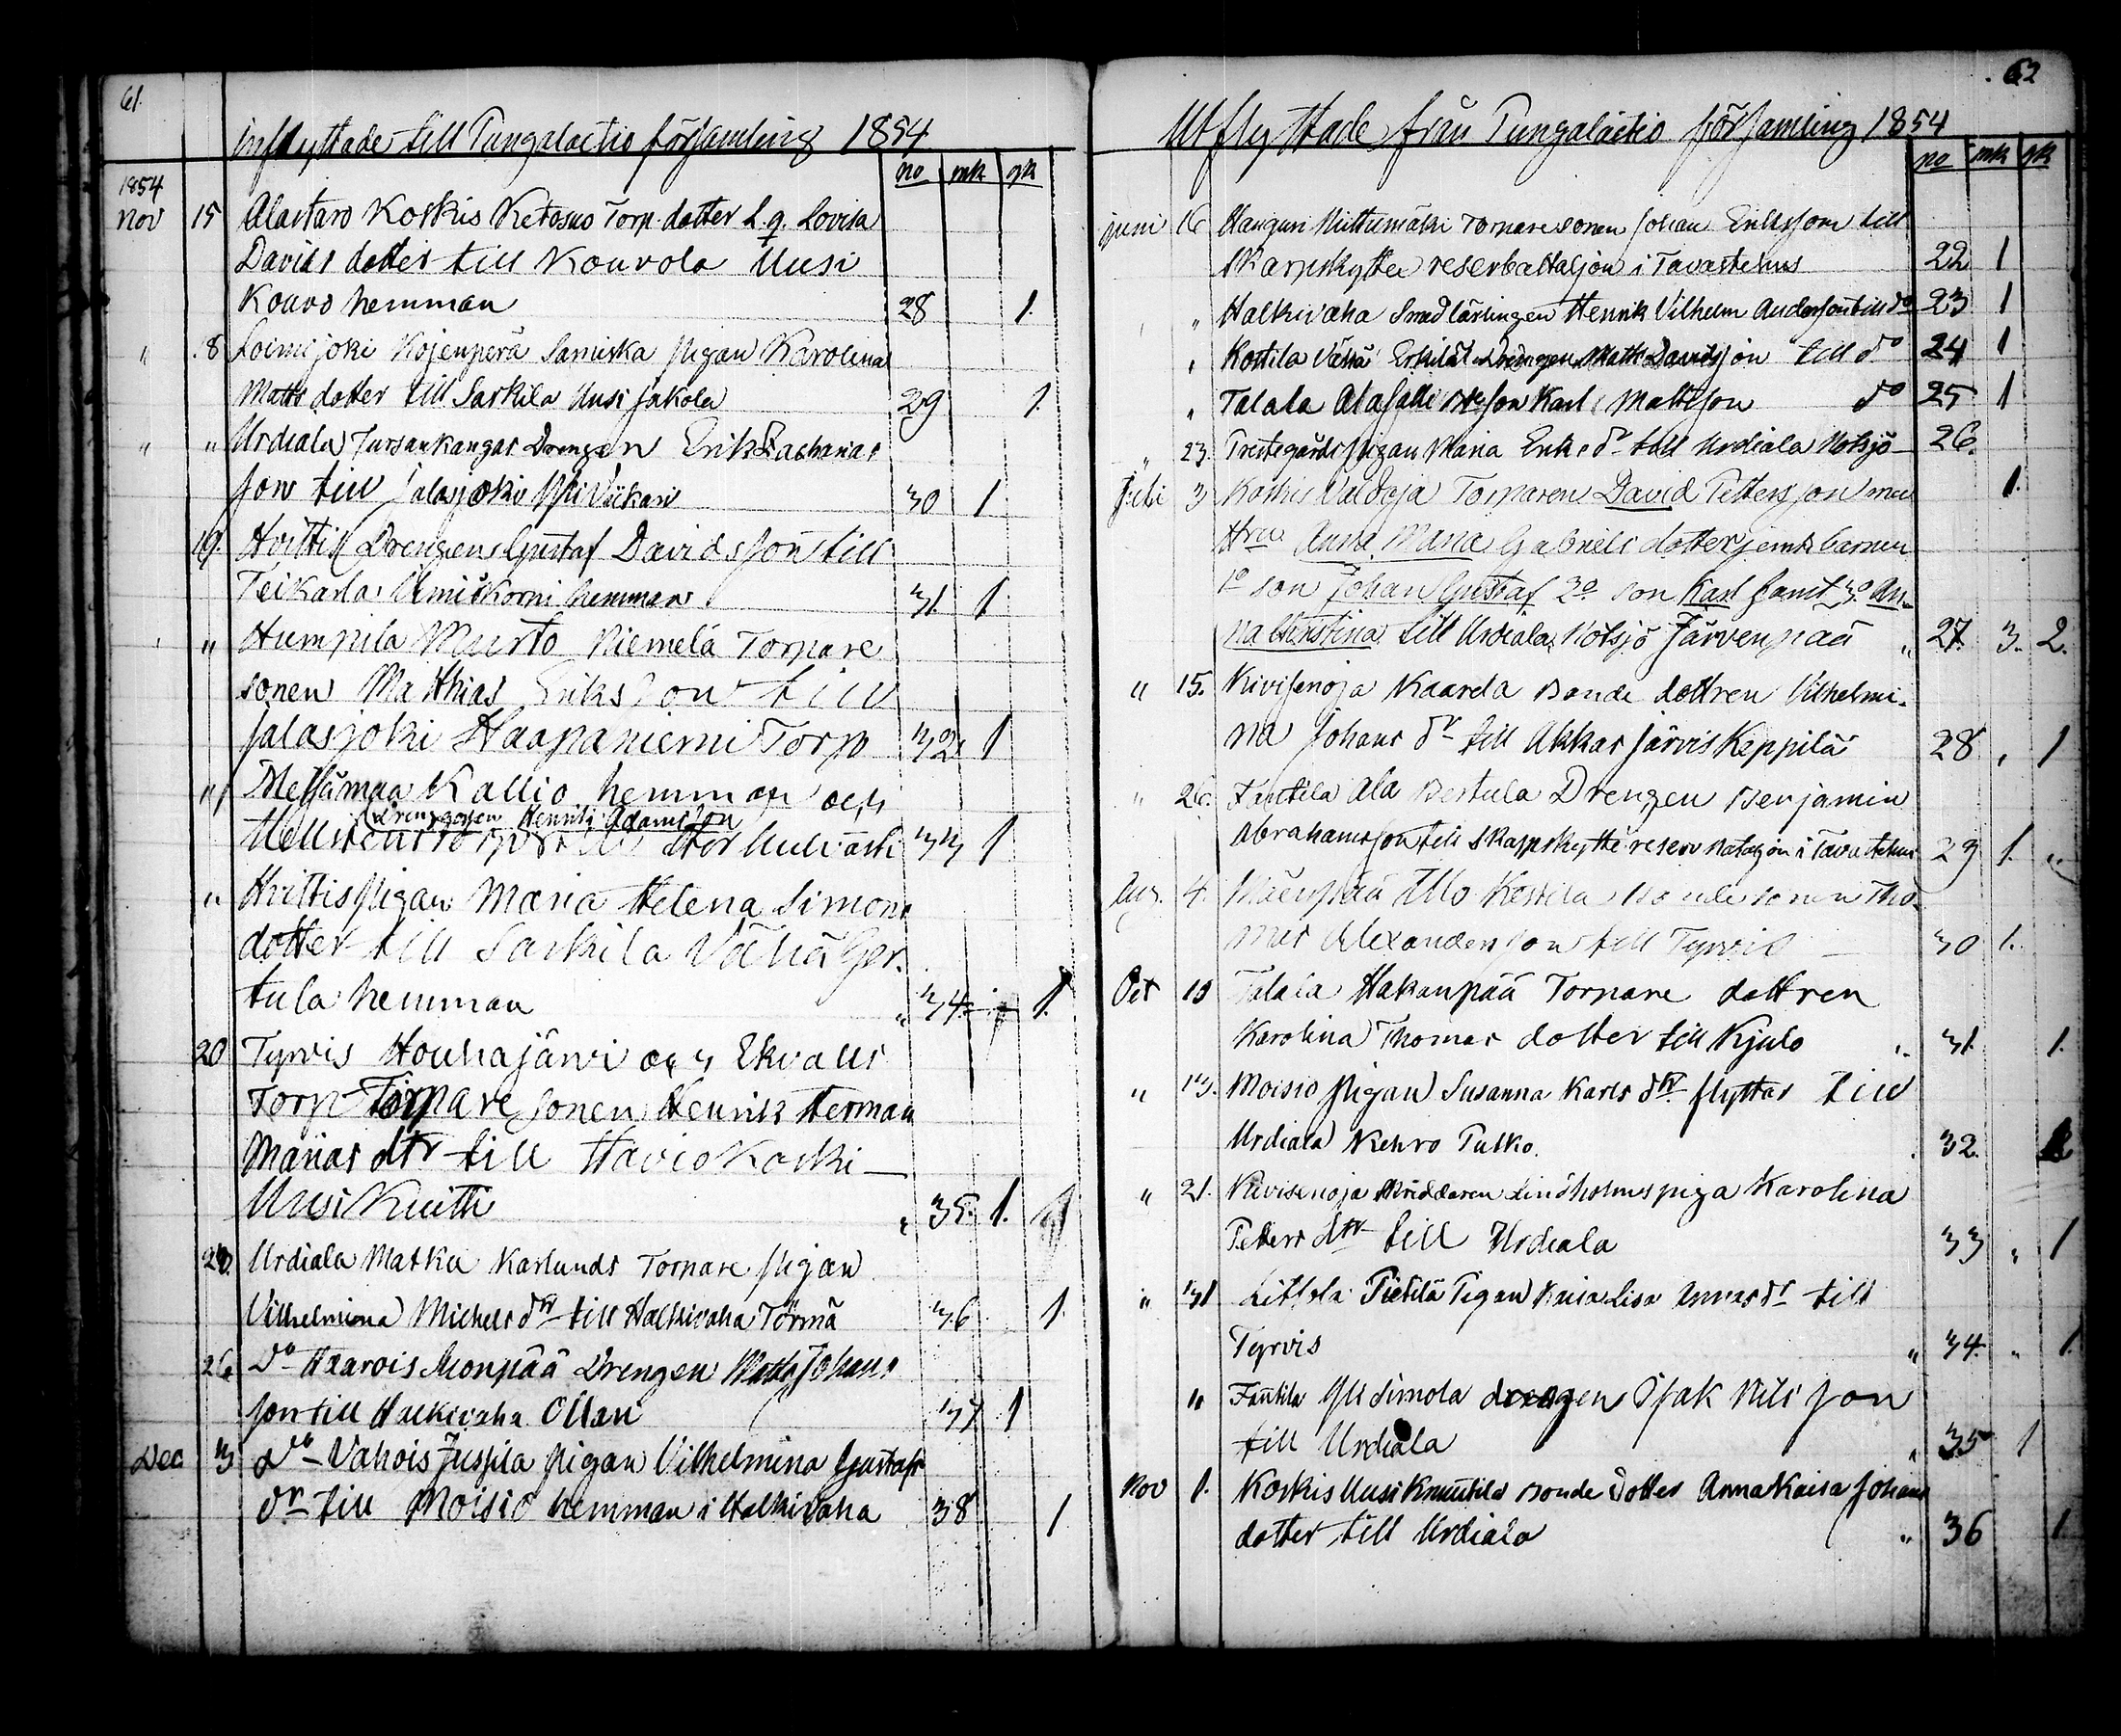 61.
Inflyttade till Pungalaitio församling 1854
no mk qk
1854
Nov 15 Alastaro Koskis Ketosuo Torp. dotter L. q. Lovisa
Davids dotter till Kouvola Uusi
Kouvo hemman 28 1.
" 8 Loimijoki Kojenperä Samiska pigan Karolina
Matts dotter till Sarkila Uusi Jakola 29 1.
" " Urdiala Jursankangas Drengen Erik Zacharias
son till Jalasjoki Yli Viikari 30 1
19. Hvittis Drengen Gustaf Davidsson till
Teikarla Uusi Korni hemman 31 1
" Humpila Murto Niemelä Torpare
sonen Matthias Eriksson till
Jalasjoki Haapaniemi Torp 32. 1
" Messämaa Kallio hemman och
Drenggossen Henrik Adamsson
33 1
" Hvittis pigan Maria Helena Simons
dotter till Sarkila Vähä Ger.
tula hemman " 34. 1.
20 Tyrvis Houhajärvi och Ekvalls
Torp Torpare sonen Henrik Herman
Marias dtr till Havio Koski
Uusi Kuitti " 35. 1.
20. Urdiala Matku Karlunds Torpare pigan
Vilhelmina Michels dtr till Halkivaha Törmä 36 1.
26. Do Haarois Monpää Drengen Matts Johans
son till Halkivaha Ollari 37 1
Dec 3 Do Vahois Juspila pigan Vilhelmina Gustafs
dr till Moisio hemman i Halkivaha 38 1
62
Utflyttade från Pungalaitio församling 1854
no mk qk
Juni 16 Hanguri Nittumäki Torpare sonen Johan Eriksson till
Skarpskytte reserbataljon i Tavastehus 22 1
" Halkivaha Smedlärlingen Henrik Vilhelm Andersson till do 23 1
" Kostila Vähä Erkilä Drengen Matts Davidsson till do 24 1
" Talala Alasalli son Karl Mattsson do 25 1
" 23. Prestegårds pigan Maria Eriks dr till Urdiala Notsjö 26. 1.
Juli 3 Koskis Valdoja Torparen David Pettersson med
Hru Anna Maria Gabriels dotter jemte barnen
1o son Johan Gustaf 2o son Karl samt 3o An-
na Christina till Urdiala Notsjö Järvenpää " 27. 3. 2.
" 15. Kivisenoja Kaarela Bonde dottren Vilhelmi-
na Johans dr till Akkas järvis Keppilä 28 " 1
" 26. Fantila Ala Bertula Drengen Benjamin
Abrahamsson till Skarpskytte reserv bataljon i Tavastehus 29 1. "
Aug. 4. Mäenpää Ylö Kostila Bonde sonen Tho-
mas Alexandersson till Tyrvis 30 1.
Oct 10 Talala Hakanpää Torpare dottren
Karolina Thomas dotter till Kjulo " 31. 1.
" 13. Moisio pigan Susanna Karls dtr flyttar till
Urdiala Kehro Pulko. 32. 1
" 21. Kivisenoja Skräddaren Lindholms piga Karolina
Petters dtr till Urdiala 33 " 1
" 31 Littola Pietilä Pigan Kaisa Lisa Annas dr till
Tyrvis " 34. " 1.
" Fantila Yli Simola drengen Isak Nilsson
till Urdiala " 35 1
Nov 1. Koskis Uusi Knuutila Bonde Dotter Anna Kaisa Johans
dotter till Urdiala " 36 1